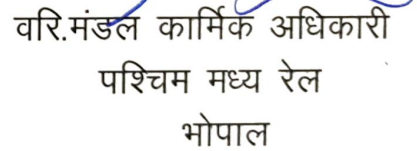 वरि.मंडल कार्मिक अधिकारी
पश्चिम मध्य रेल
भोपाल